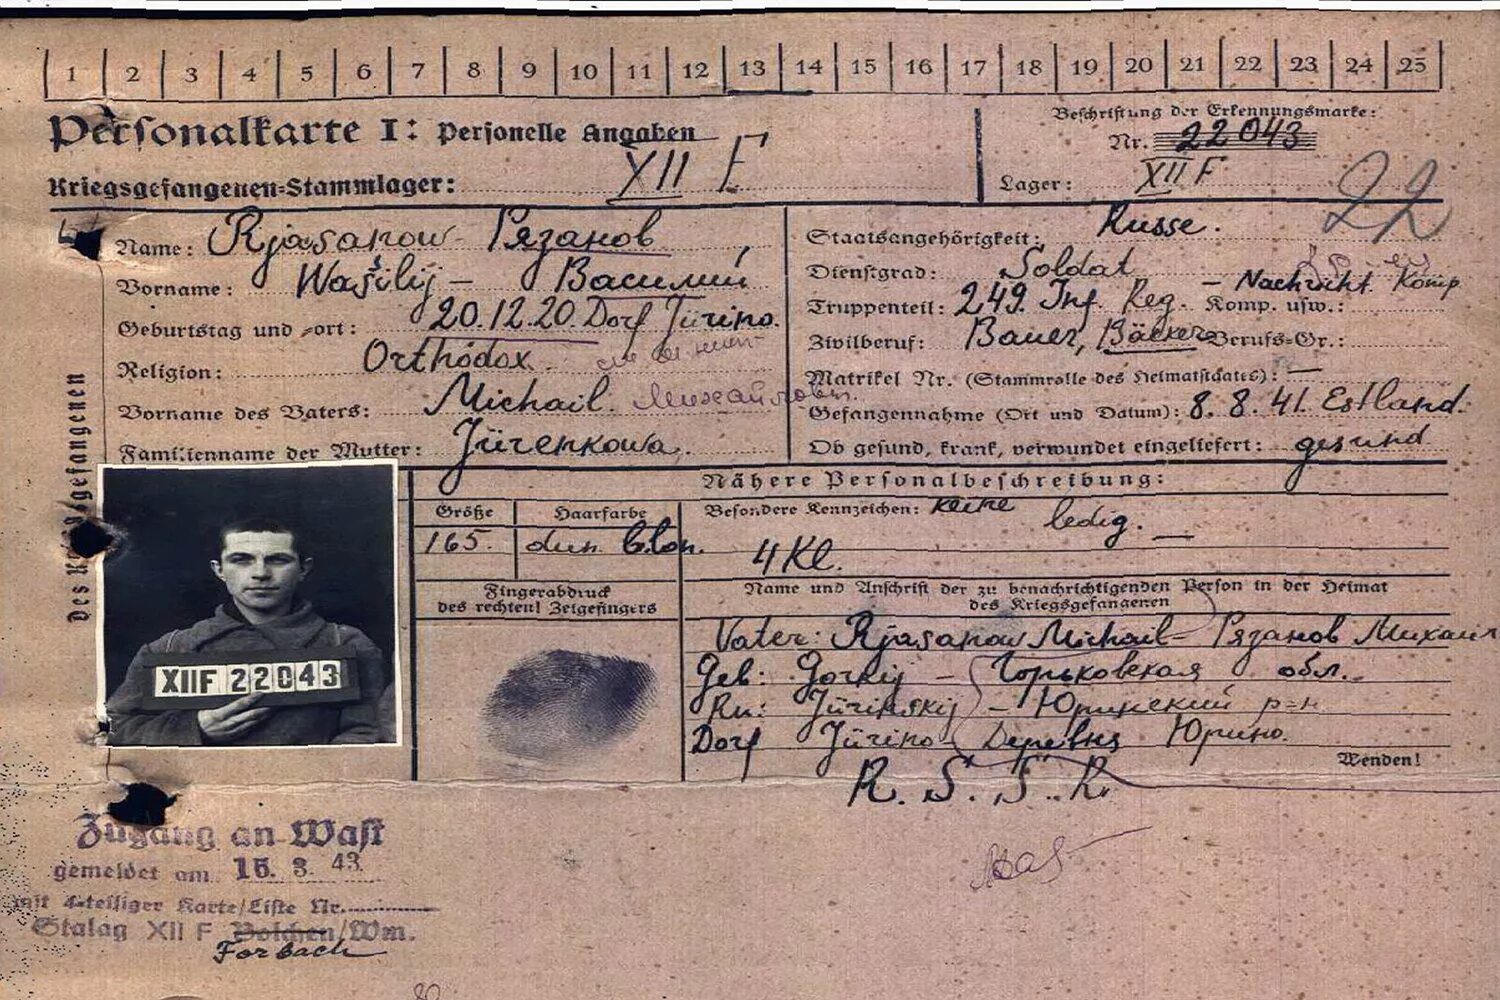 1 2 3 4 5 6 7 8 9 10 11 12 13 14 15 16 17 18 19 20 21 22 23 24 25
Personalkarte I: Personelle Angaben
Kriegsgefangenen-Stammlager: XII F
Beschriftung der Erkennungsmarke:
Nr. 22043
Lager: XII F
22
Des Kriegsgefangenen
Name: Rjasanow - Рязанов
Vorname: Wasilij - Василий
Geburtstag und -ort: 20.12.20. Dorf Jürino.
Religion: Orthodox
Vorname des Vaters: Michail. Михайлович
Familienname der Mutter: Jürenkowa.
Staatsangehörigkeit: Russe.
Dienstgrad: Soldat
Truppenteil: 249. Inf. Reg. - Nachricht. Komp. Komp. usw.:
Zivilberuf: Bauer, Bäcker Berufs-Gr.:
Matrikel Nr. (Stammrolle des Heimatstaates): —
Gefangennahme (Ort und Datum): 8. 8. 41. Estland.
Ob gesund, krank, verwundet eingeliefert: gesund
XIIF 22043
Nähere Personalbeschreibung:
Größe Haarfarbe
165. dun. blon.
Besondere Kennzeichen: keine ledig. —
4 Kl.
Fingerabdruck
des rechten! Zeigefingers
Name und Anschrift der zu benachrichtigenden Person in der Heimat
des Kriegsgefangenen
Vater: Rjasanow Michail - Рязанов Михаил
Geb: Gorkij - Горьковская обл.
Rn: Jürinskij - Юринский р-н
Dorf Jürino - Деревня Юрино.
Wenden!
R. S. S. R.
Zugang an Wast
gemeldet am 15. 3. 43.
mit 4-teiliger Karte/Liste Nr.
Stalag XII F Bolchen/Wm.
Forbach